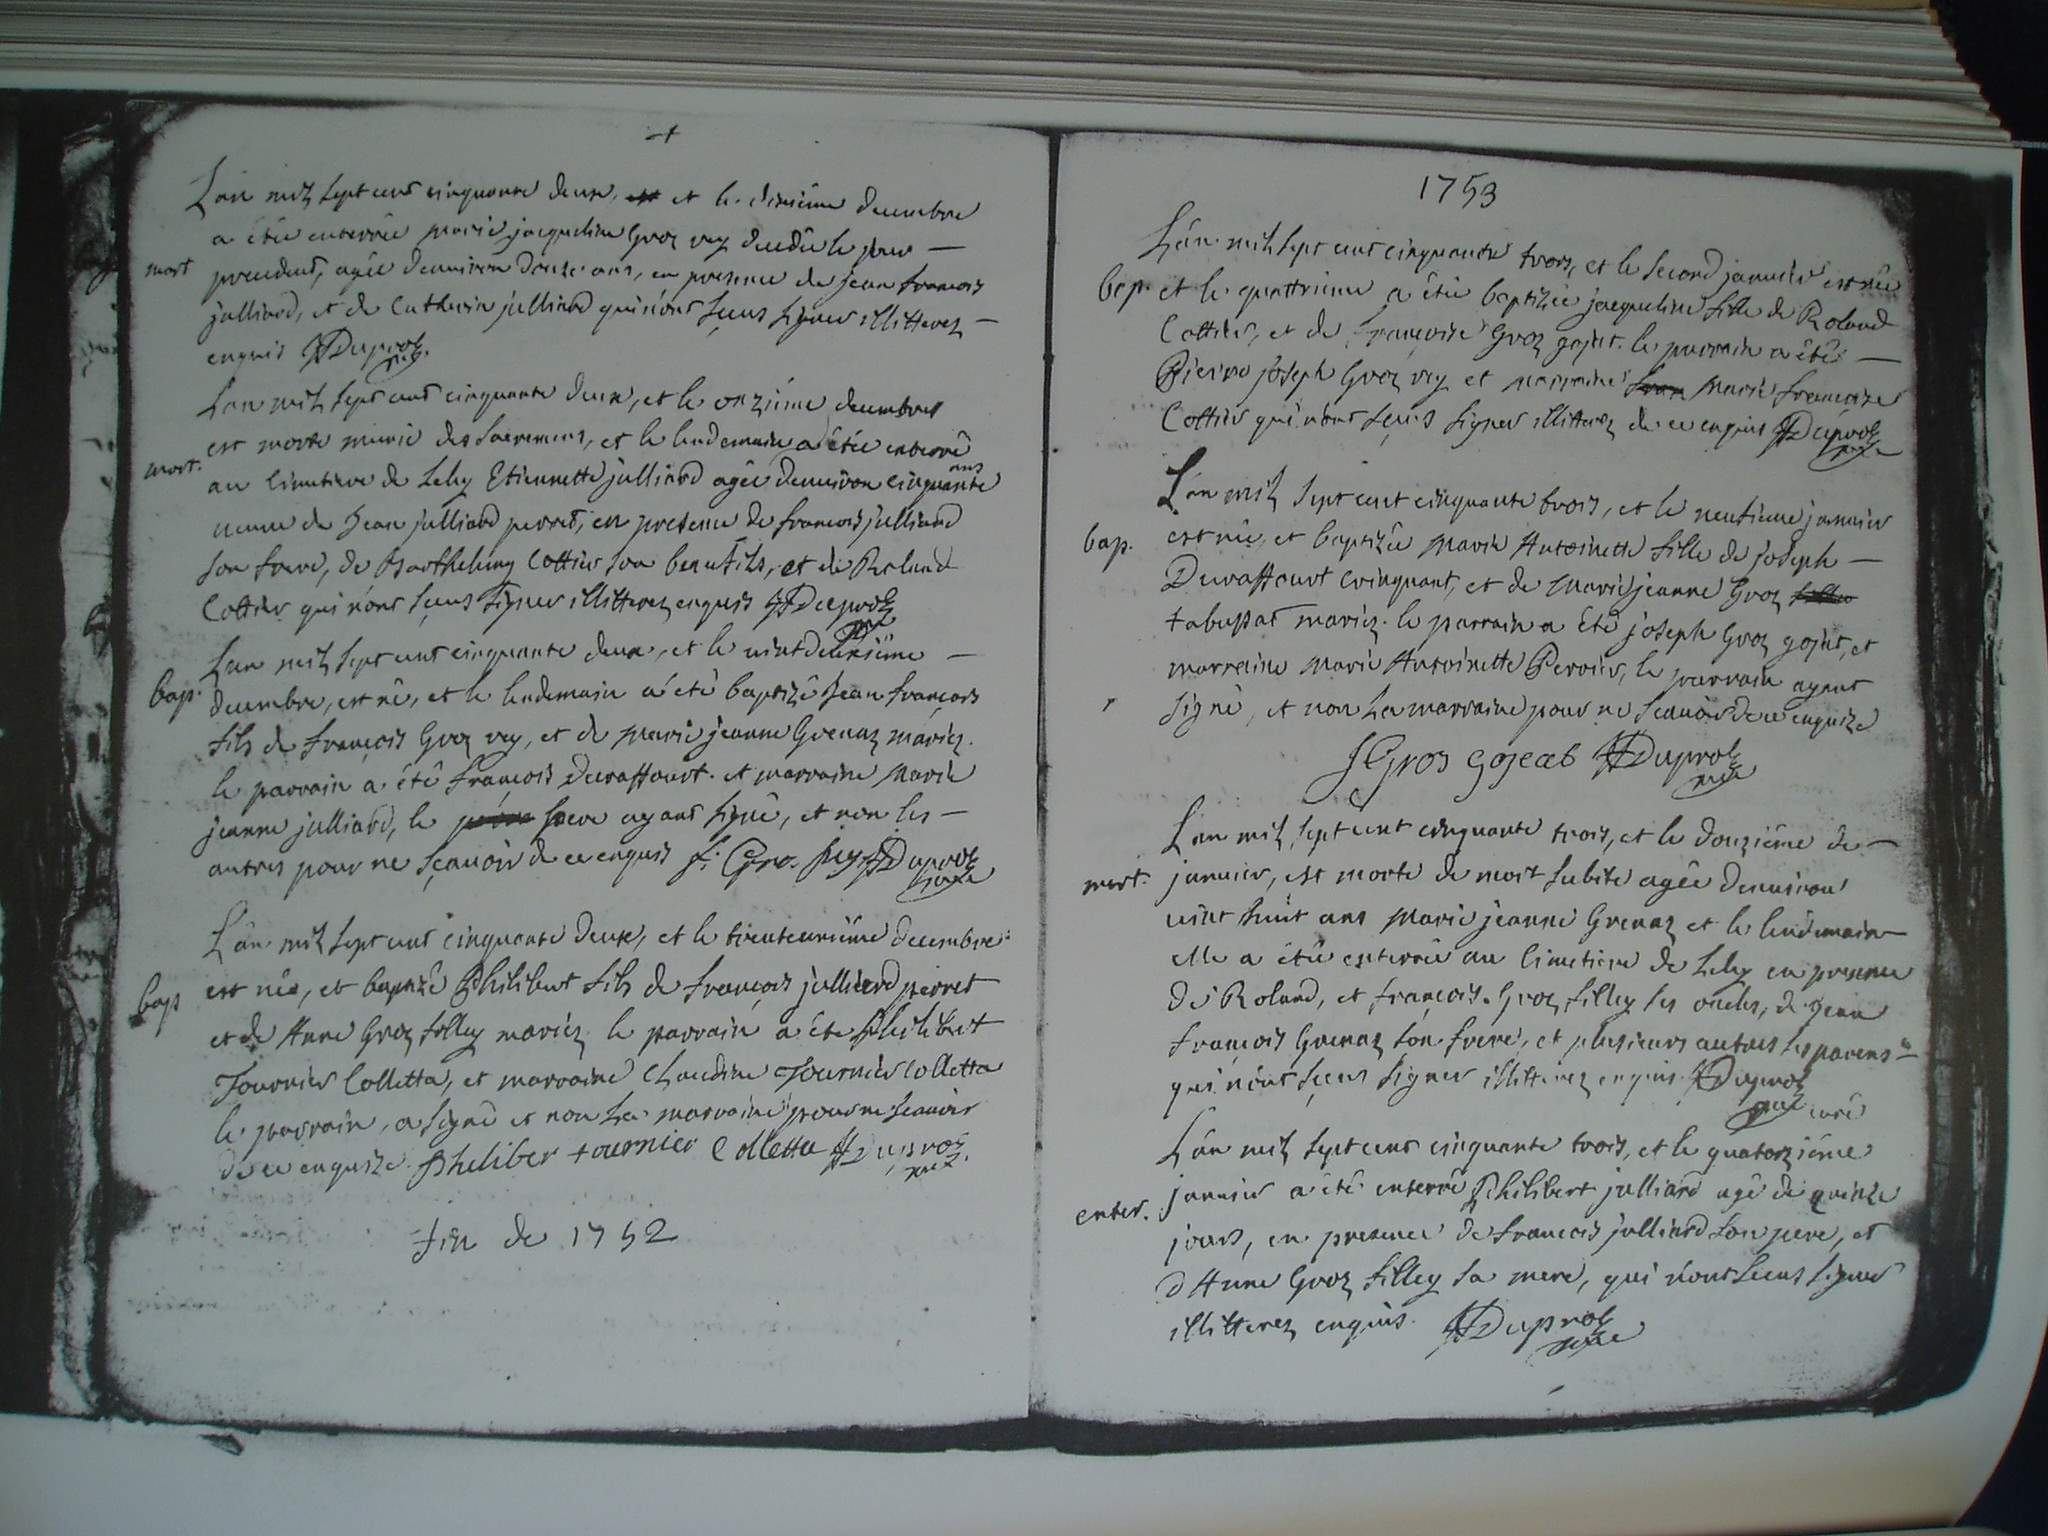 L'an mil sept cent cinquante deux, et le dixiême decembre
a êtée enterrée marie jacqueline Groz rey decedée le jour
mort
precedent, agée denviron douze ans, en presence de jean francois
julliard, et de Catherin julliard qui n'ont sçeus signer illitterez
enquis Duproz
L'an mil sept cent cinquante deux, et le onziéme decembre
est morte munie des sacremens, et le lendemain a êtée enterré
mort.
au Cimetiere de Lely Etiennette julliard agée denviron cinquante ans
veuve de Jean julliard perret, en presence de francois julliard
son frere, de Barthelemy Cottier son beaufils, et de Roland
Cottier qui n'ont sçeus signer illitterez enquis Duproz
L'an mil sept cent cinquante deux, et le vint deuxiême
bap.
decembre, est né, et le lendemain a été baptizé Jean francois
fils de françois Groz rey, et de marie jeanne Grenaz mariez.
le parrain a été françois Devaffourt. et marraine marie
jeanne julliard, le pere ayant signé, et non les
autres pour ne sçavoir de ce enquis f. Gro. Rey Duproz
L'an mil sept cent cinquante deux, et le trenteuniême decembre
est né, et baptizé Philibert fils de françois julliard perret
bap
et de Anne Groz filley mariez. le parrain a été Philibert
Tournier Colletta, et marraine Claudine Tournier Colletta
le parrain, a signé et non La marraine pour ne scavoir
de ce enquize. Pheliber tournier Colletta Duproz
fin de 1752
1753
L'an mil sept cent cinquante trois, et le second janvier est née
bap.
et le quattrieme a étée baptizée jacqueline fille de Roland
Cottier, et de françoise Groz gojat. le parrain a été
Pierre joseph Groz rey et marraine marie francoise
Cottier qui n'ont sçeus signer illitterez de ce enquis Duproz
L'an mil sept cent cinquante trois, et le neufieme janvier
bap.
est née, et baptizée marie Antoinette fille de joseph
Devaffourt Crinquant, et de marie jeanne Groz
tabussat mariez. le parrain a été joseph Groz gojat, et
marraine marie Antoinette Perrier, le parrain ayant
signé, et non La marraine pour ne scavoir de ce enquize
J Gros gojeat Duproz
L'an mil sept cent cinquante trois, et le douziéme de
mort.
janvier, est morte de mort subite agée denviron
vint huit ans marie jeanne Grenaz et le lendemain
elle a étée enterrée au Cimetiere de Lely en presence
de Roland, et françois Groz filley ses oncles, de Jean
françois Grenaz son frere, et plusieurs autres ses parens
qui n'ont sçeus signer illitterez enquis. Duproz
curé
L'an mil sept cent cinquante trois, et le quatorziéme
enter.
janvier a été enterré Philibert julliard agé de quinze
jours, en presence de francois julliard son pere, et
d'Anne Groz filley sa mere, qui n'ont sceus signer
illitterez enquis. Duproz